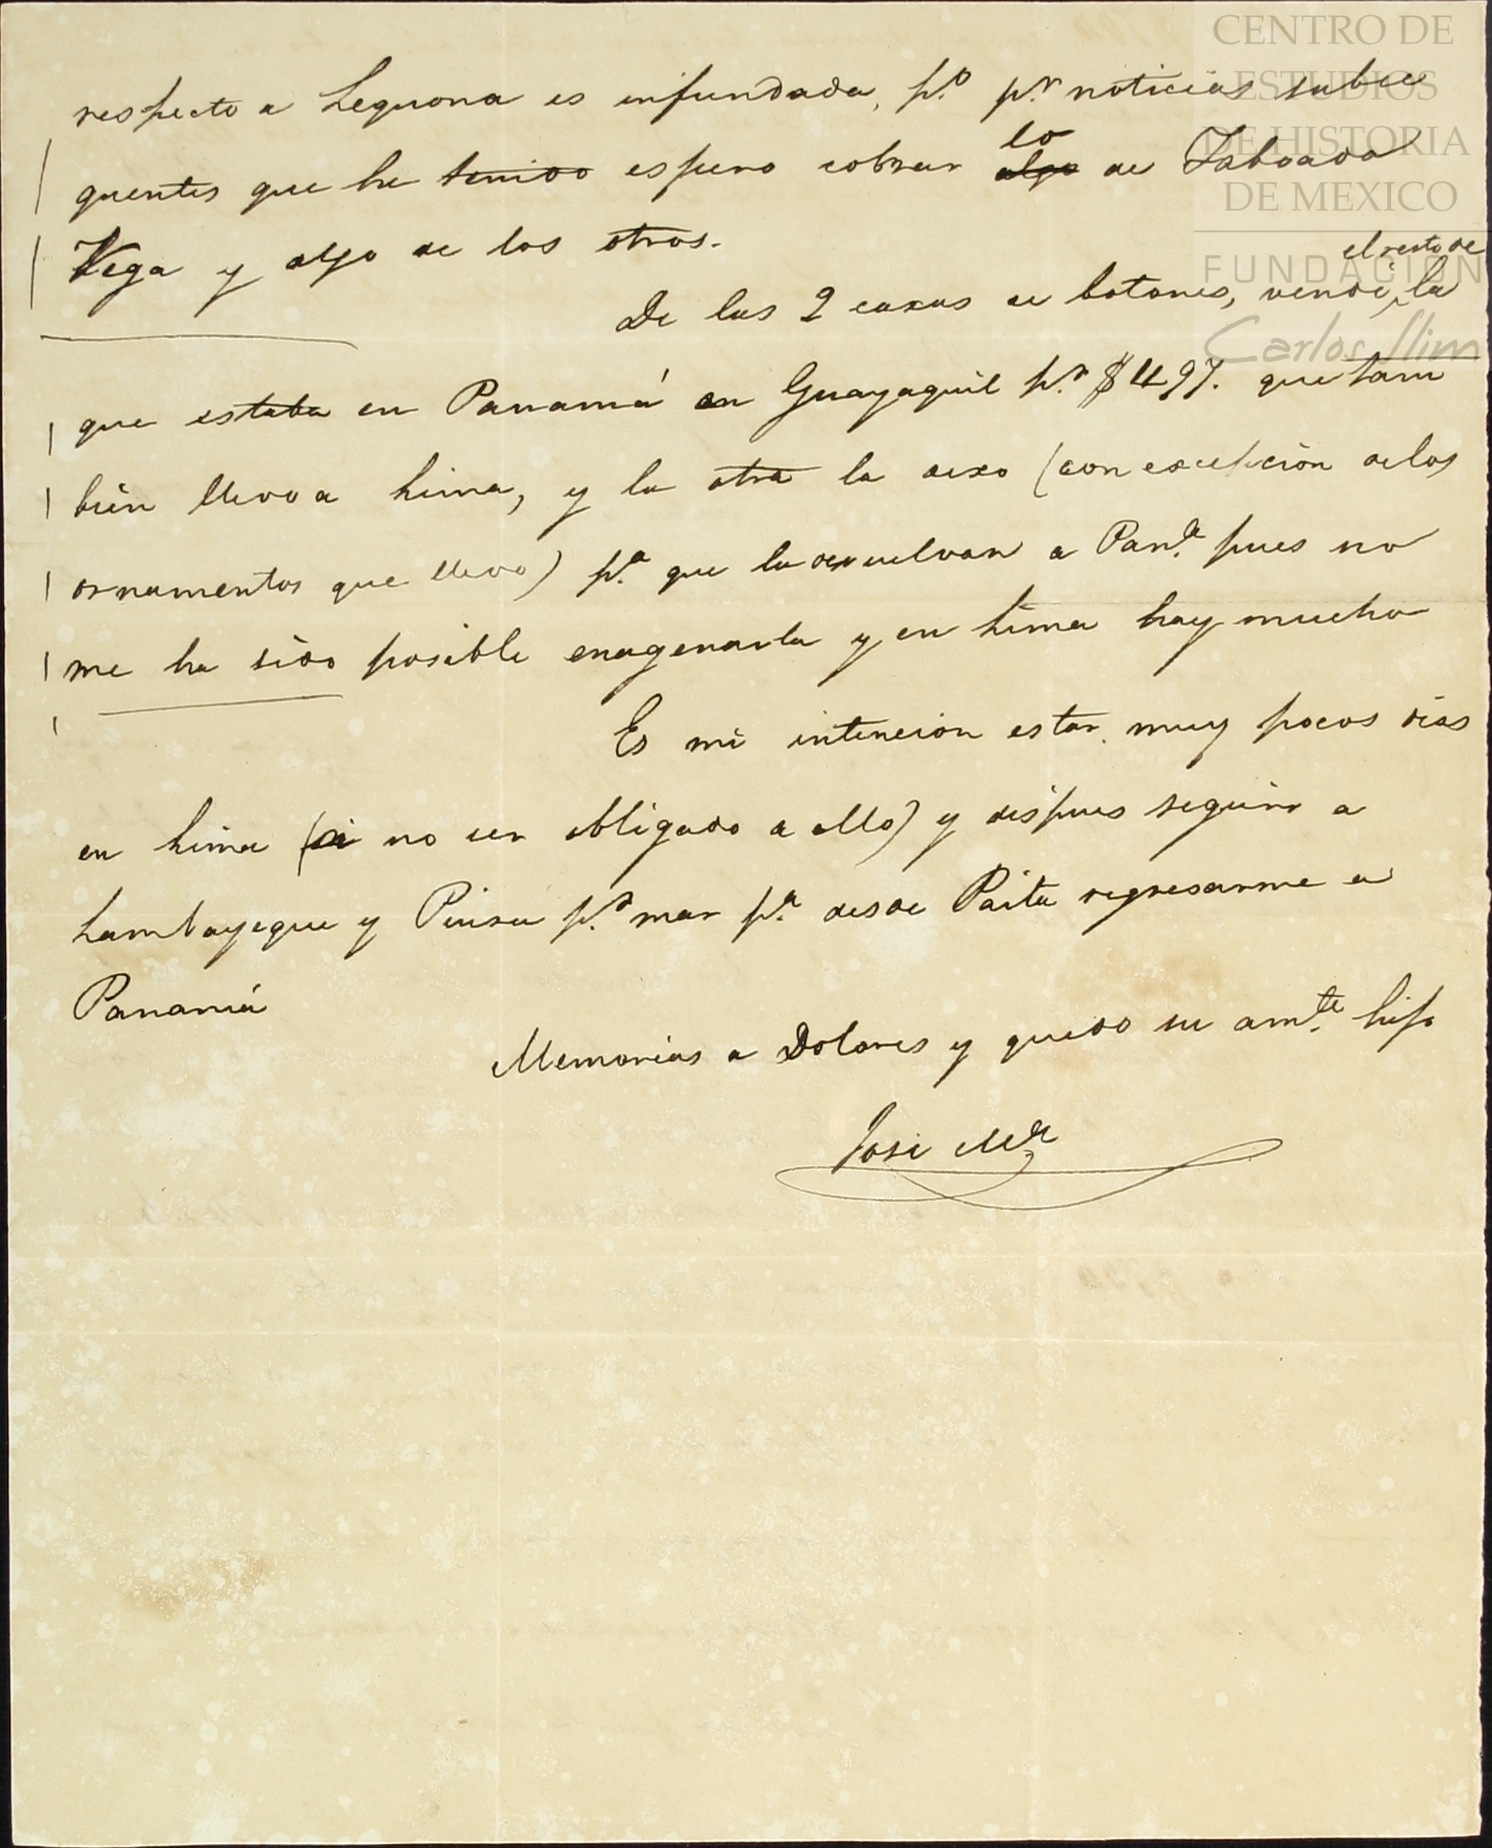 CENTRO DE
ESTUDIOS
DE HISTORIA
DE MEXICO
FUNDACIÓN
Carlos Slim
respecto a Lequona es infundada, p.º p.r noticias subce
quentes que he tenido espero cobrar lo algo de Taboada
Vega y algo de los otros.
De las 2 caxas de botones, vendí el resto de la
que estaba en Panamá en Guayaquil p.r $497. que tam
bién llevo a Lima, y la otra la dexo (con excepción de los
ornamentos que llevo) p.a que la devuelvan a Pan.a pues no
me ha sido posible enagenarla y en Lima hay mucho
Es mi intención estar muy pocos días
en Lima (si no ser obligado a ello) y despues seguir a
Lambayeque y Piura p.r mar p.a desde Paita regresarme a
Panamá
Memorias a Dolores y quedo su am.te hijo
José M.a